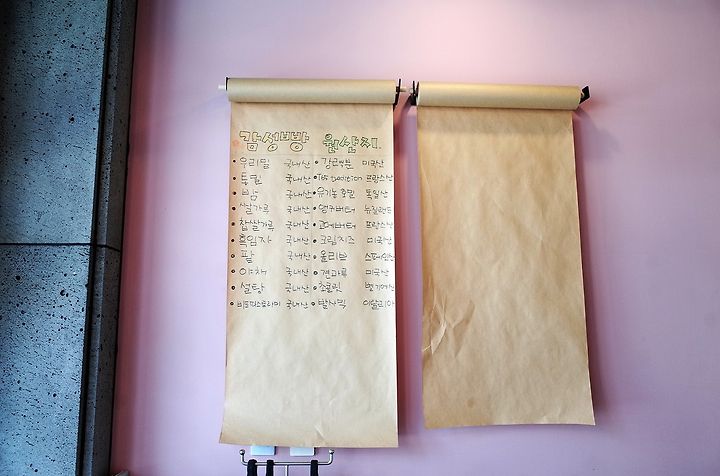 감성빵 원산지.
• 우리밀 국내산 • 강력분 미국산
• 통밀 국내산 • T65 tradition 프랑스산
• 밤 국내산 • 유기농호밀 독일산
• 쌀가루 국내산 • 앵커버터 뉴질랜드
• 찹쌀가루 국내산 • 고메버터 프랑스산
• 흑임자 국내산 • 크림치즈 미국산
• 팥 국내산 • 올리브 스페인산
• 야채 국내산 • 견과류 미국산
• 설탕 국내산 • 초콜릿 벨기에산
• 국내산 • 발사믹 이탈리아